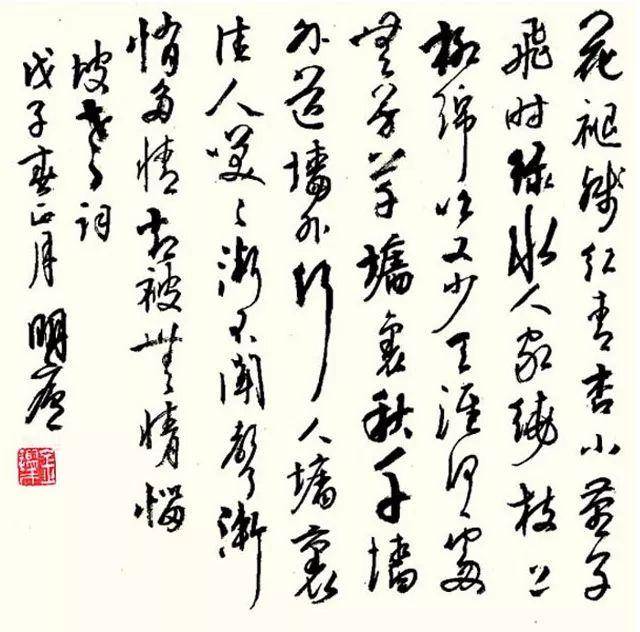 花褪殘紅青杏小燕子
飛時綠水人家繞枝上
柳綿吹又少天涯何處
無芳草墻裏秋千墻
外道墻外行人墻裏
佳人笑〻漸不聞聲漸
悄多情却被無情惱
坡老詞
戊子春正月 明